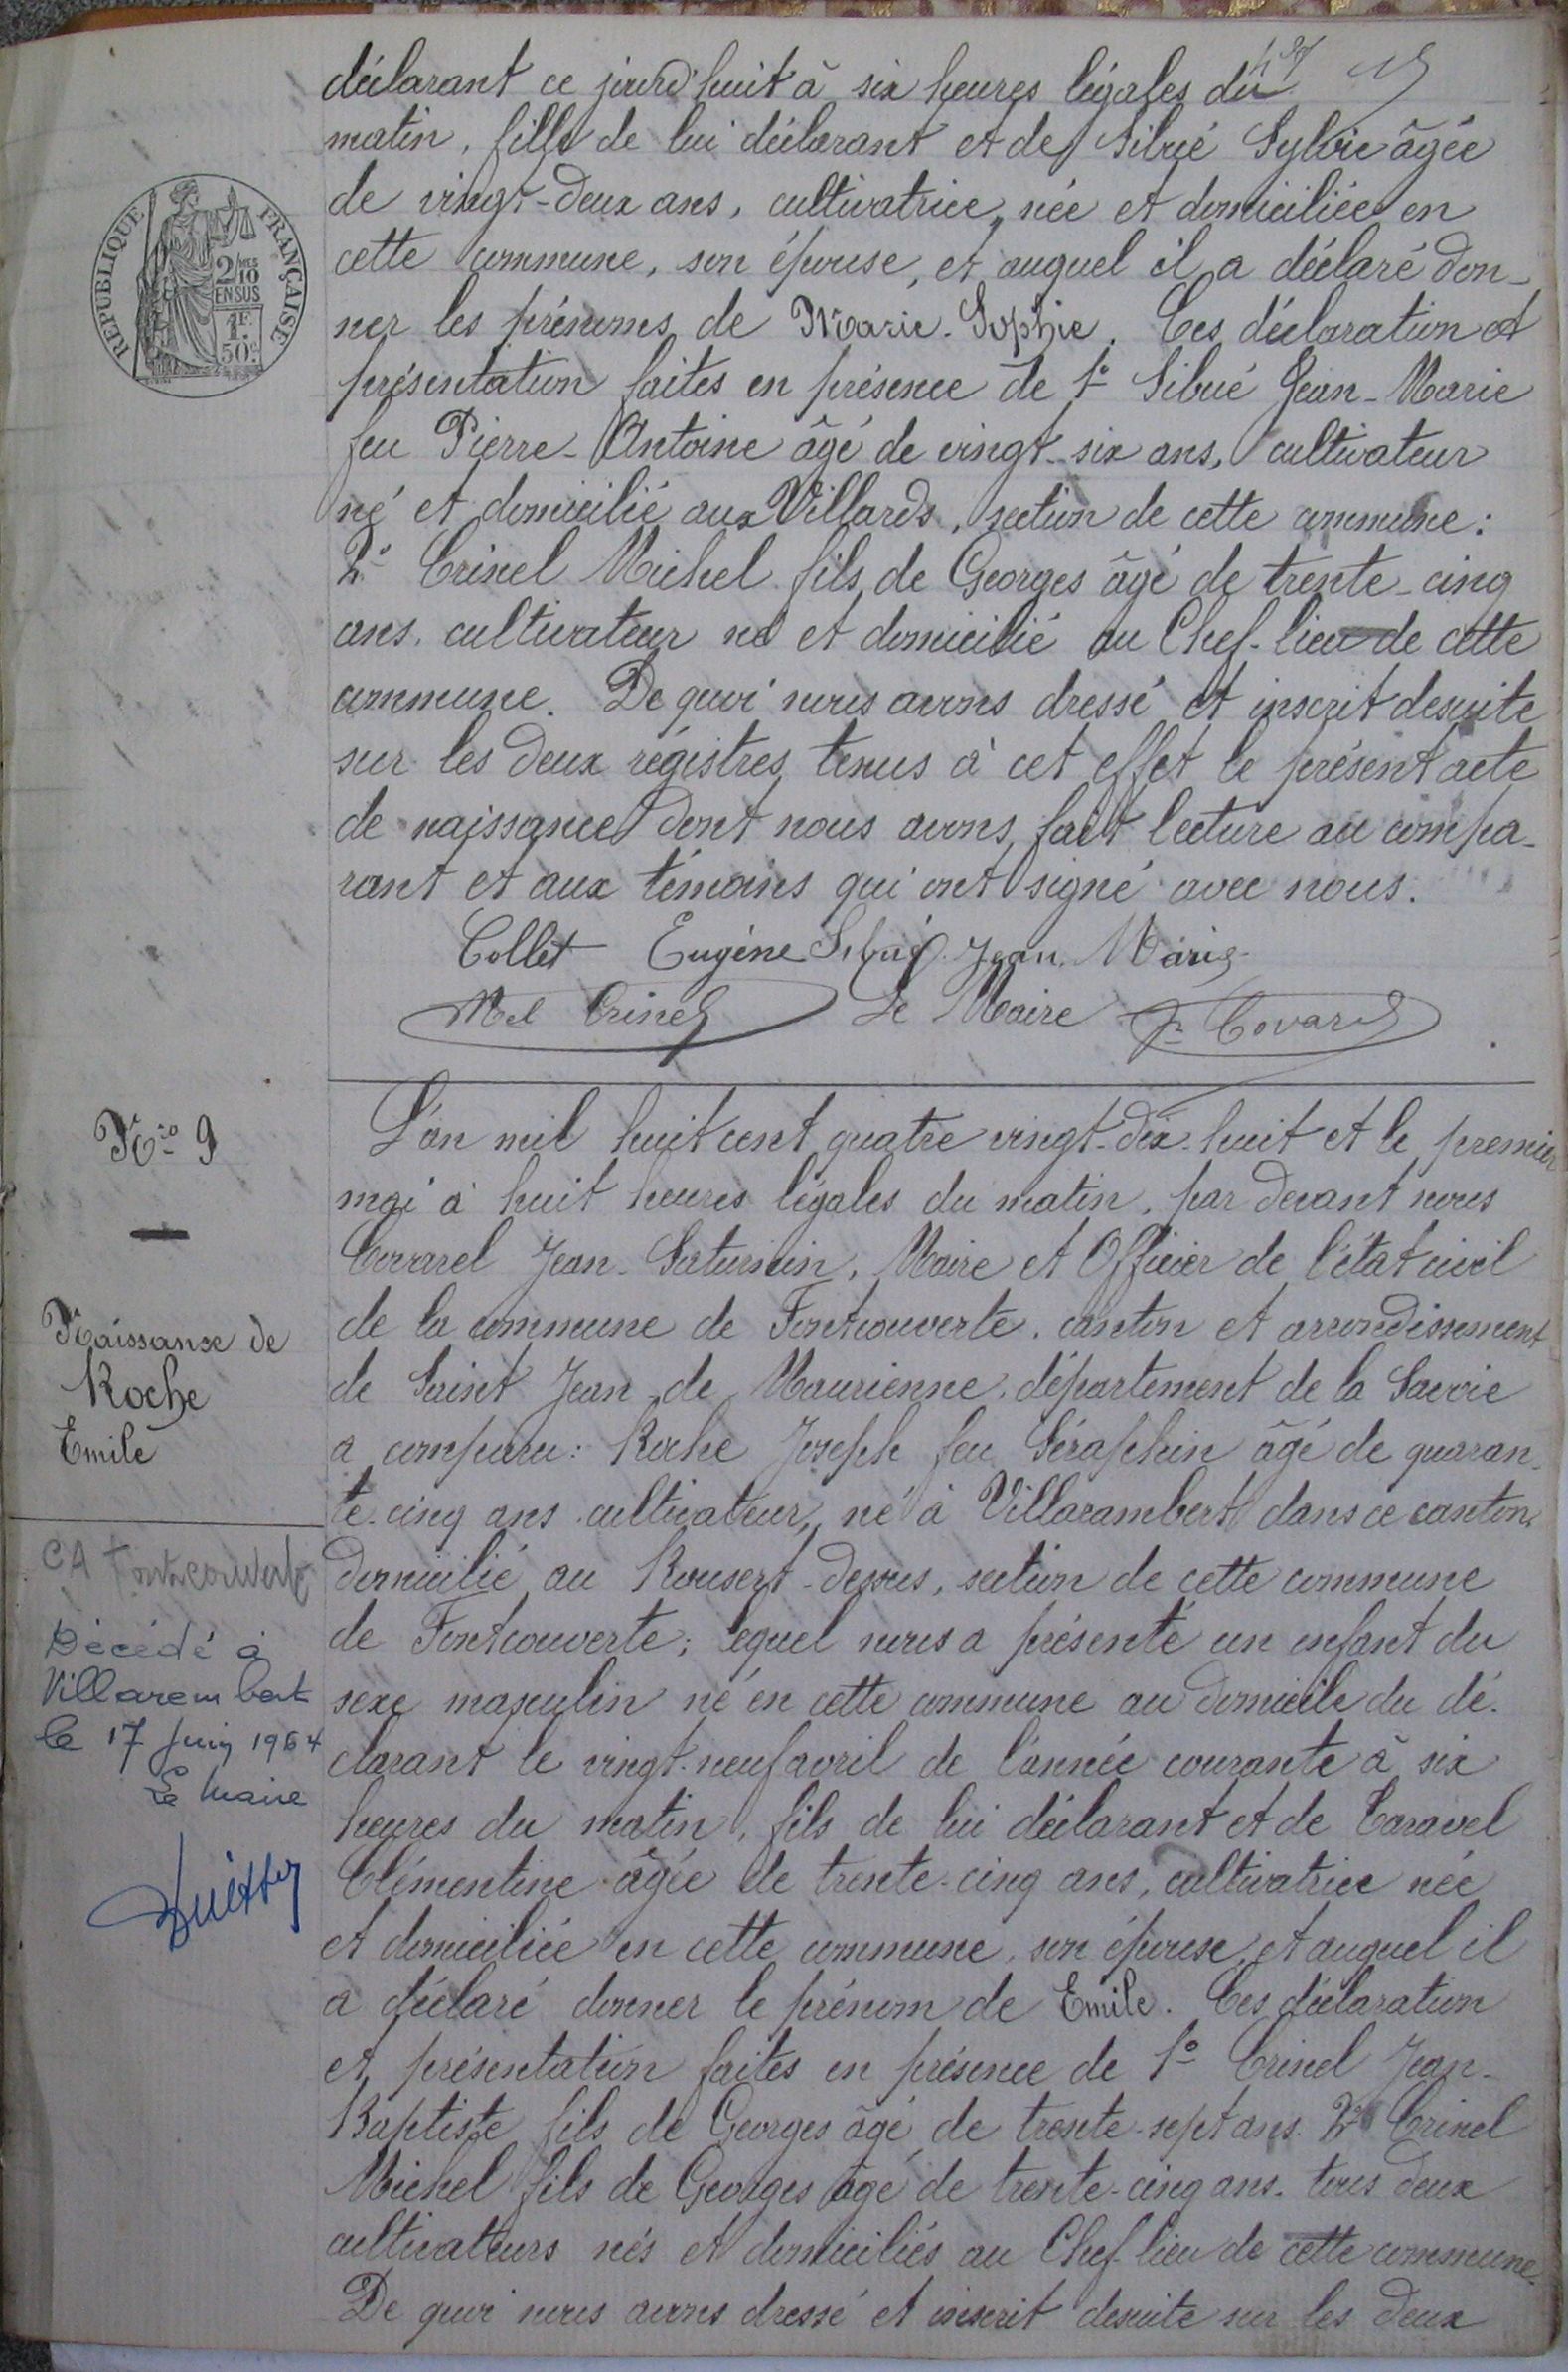 déclarant ce jourd'huit à six heures légales du 15
matin, fille de lui déclarant et de Sibué Sylvie âgée
de vingt-deux ans, cultivatrice, née et domiciliée en
cette commune, son épouse, et auquel il a déclaré don-
ner les prénoms de Marie-Sophie. Ces déclaration et
présentation faites en présence de 1° Sibué Jean-Marie
feu Pierre-Antoine âgé de vingt-six ans, cultivateur
né et domicilié aux Villards, section de cette commune :
2° Crinel Michel fils de Georges âgé de trente-cinq
ans, cultivateur né et domicilié au Chef-lieu de cette
commune. De quoi nous avons dressé et inscrit desuite
sur les deux régistres tenus à cet effet le présent acte
de naissance dont nous avons fait lecture au compa-
rant et aux témoins qui ont signé avec nous.
Collet Eugène Sibué Jean Marie
Mel Crinel Le Maire J. Covarel
REPUBLIQUE FRANÇAISE
2/10
EN SUS
1F.
50c.
N° 9
Naissanse de
Roche
Emile
L'an mil huit cent quatre vingt-dix-huit et le premier
mai à huit heures légales du matin, par devant nous
Covarel Jean-Saturnin, Maire et Officier de l'état civil
de la commune de Fontcouverte, canton et arrondissement
de Saint Jean de Maurienne, département de la Savoie
a comparu : Roche Joseph feu Séraphin âgé de quaran-
te-cinq ans, cultivateur, né à Villarambert dans ce canton,
domicilié au Rousert-dessus, section de cette commune
de Fontcouverte ; lequel nous a présenté un enfant du
sexe masculin né en cette commune au domicile du dé-
clarant le vingt-neuf avril de l'année courante à six
heures du matin, fils de lui déclarant et de Caravel
Clémentine âgée de trente-cinq ans, cultivatrice née
et domiciliée en cette commune, son épouse, et auquel il
a déclaré donner le prénom de Emile. Ces déclaration
et présentation faites en présence de 1° Crinel Jean-
Baptiste fils de Georges âgé de trente-sept ans 2° Crinel
Michel fils de Georges âgé de trente-cinq ans, tous deux
cultivateurs nés et domiciliés au Chef-lieu de cette commune.
De quoi nous avons dressé et inscrit desuite sur les deux
CA Fontcouverte
Décédé à
Villarembert
le 17 juin 1964
Le Maire